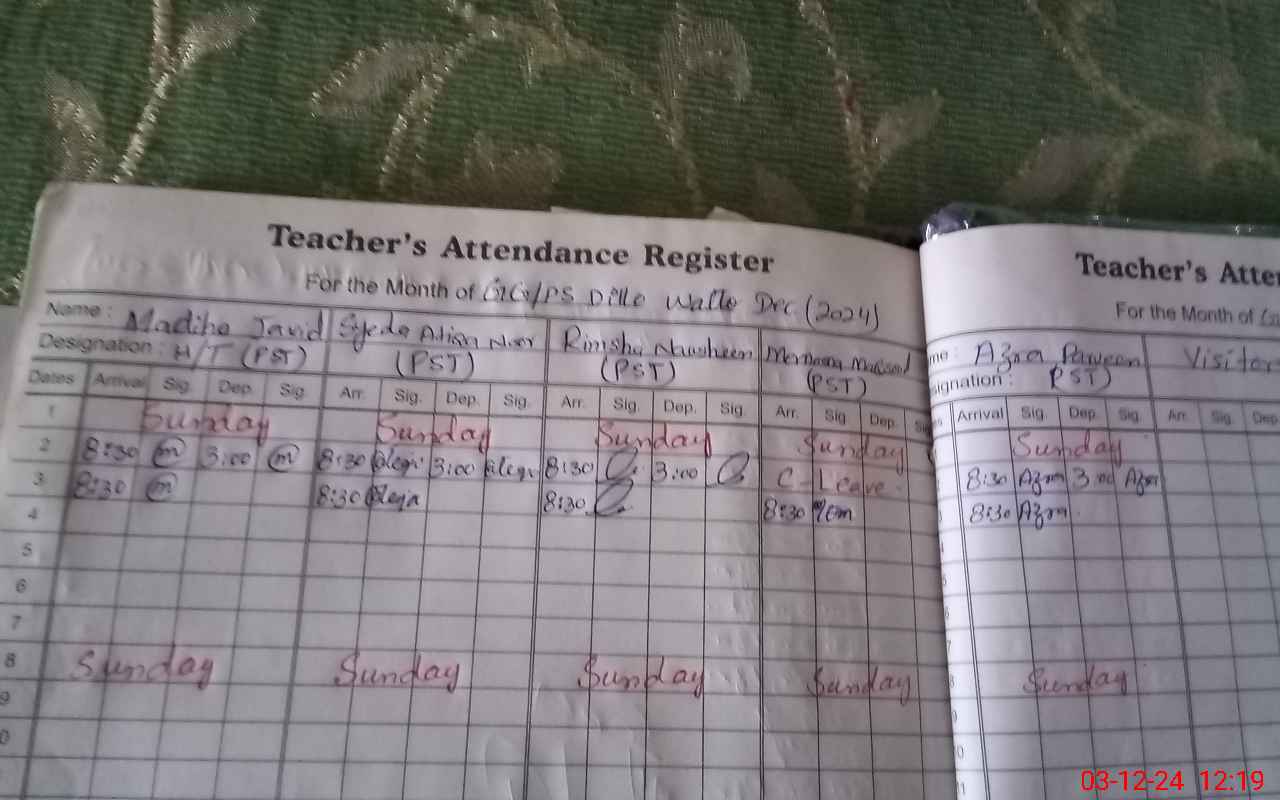 Teacher's Attendance Register
For the Month of GGPS Dille Walle Dec (2024)
Name : Madiha Javid Syeda Noor Rimsha Nausheen
Designation : H/T (PST) (PST) (PST) (PST)
Dates Arrival Sig. Dep. Sig. Arr. Sig. Dep. Sig. Arr. Sig. Dep. Sig. Arr. Sig. Dep.
1 Sunday Sunday Sunday Sunday
2 8:30 m 3:00 m 8:30 3:00 8:30 3:00 C-Leave
3 8:30 m 8:30 8:30 8:30
4
5
6
7
8 Sunday Sunday Sunday Sunday
9
0
Teacher's Atte
For the Month of
me : Azra Parveen Visitor
signation : PST)
Arrival Sig. Dep. Sig. Arr. Sig. Dep.
Sunday
8:30 Azra 3:00 Azra
8:30 Azra
Sunday
03-12-24 12:19